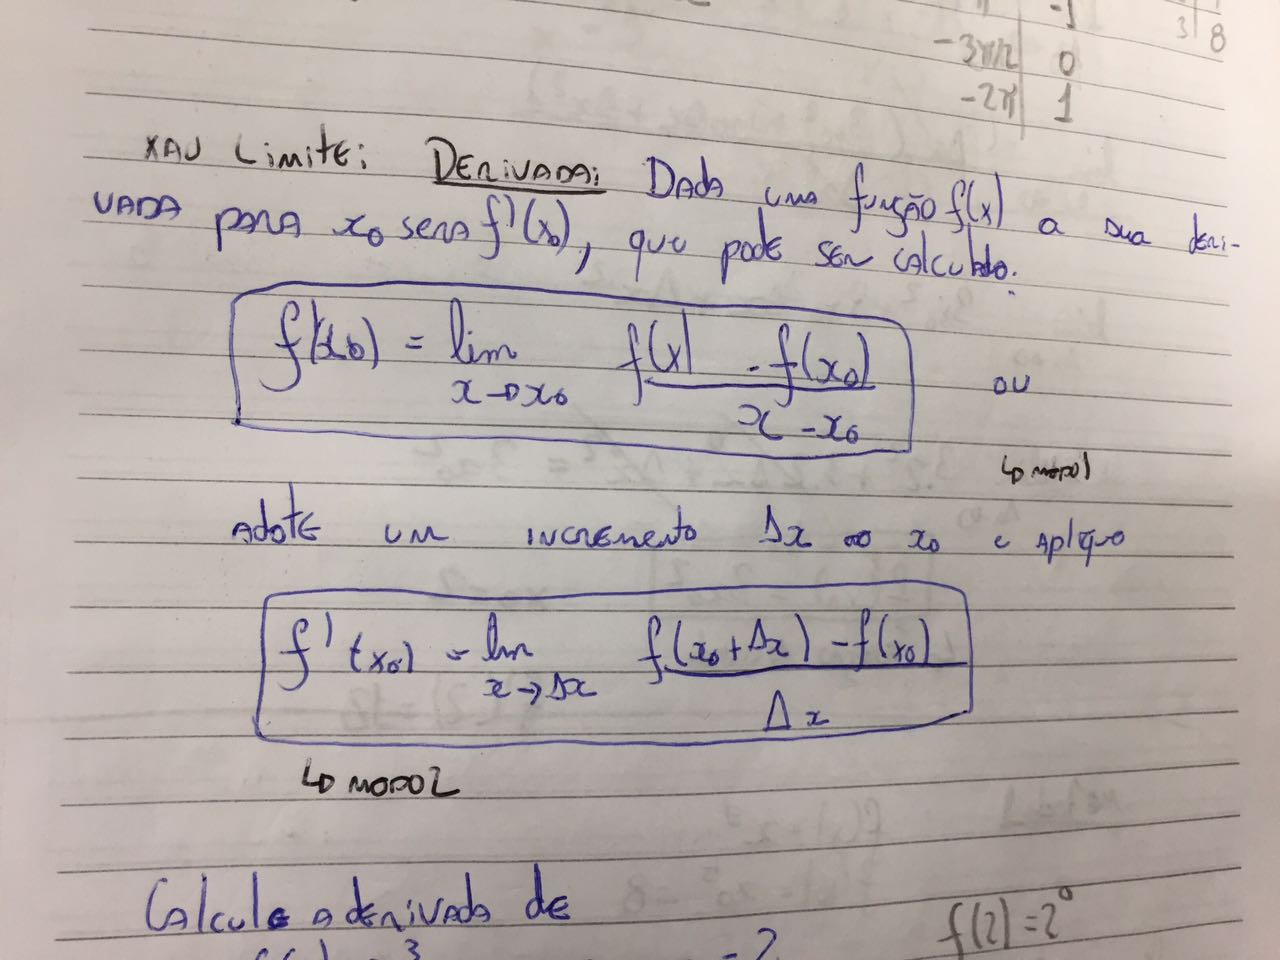 -1
3 | 8
-3π/2 | 0
-2π | 1
xau Limite: Derivada: Dada uma função f(x) a sua deri-
vada para x₀ sera f'(x₀), que pode ser calculado.
f'(x₀) = lim f(x) - f(x₀)
x→x₀ x - x₀
ou
↳ modo 1
Adote um incremento Δx ao x₀ e aplique
f'(x₀) = lim f(x₀+Δx) - f(x₀)
x→Δx Δx
↳ modo 2
Calcule a derivada de
f(2)=2